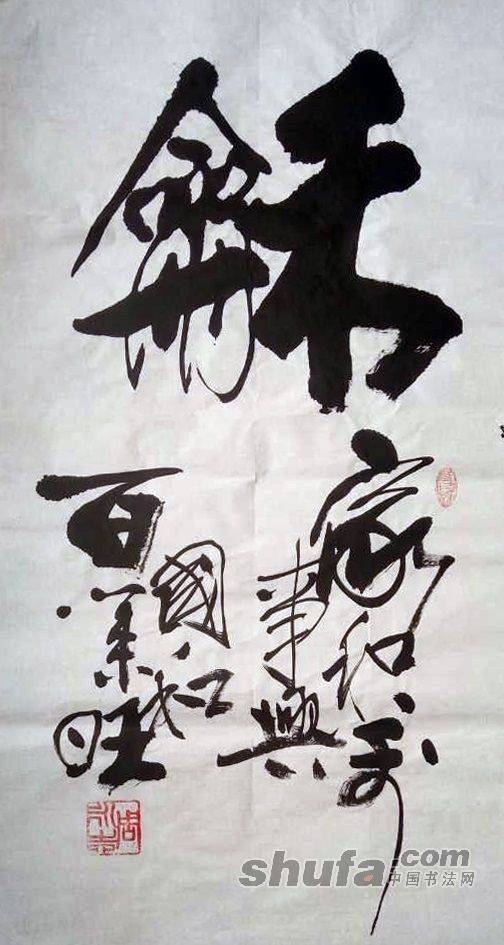 龢
家和万
事興
國和
百業旺
shufa.com
中国书法网